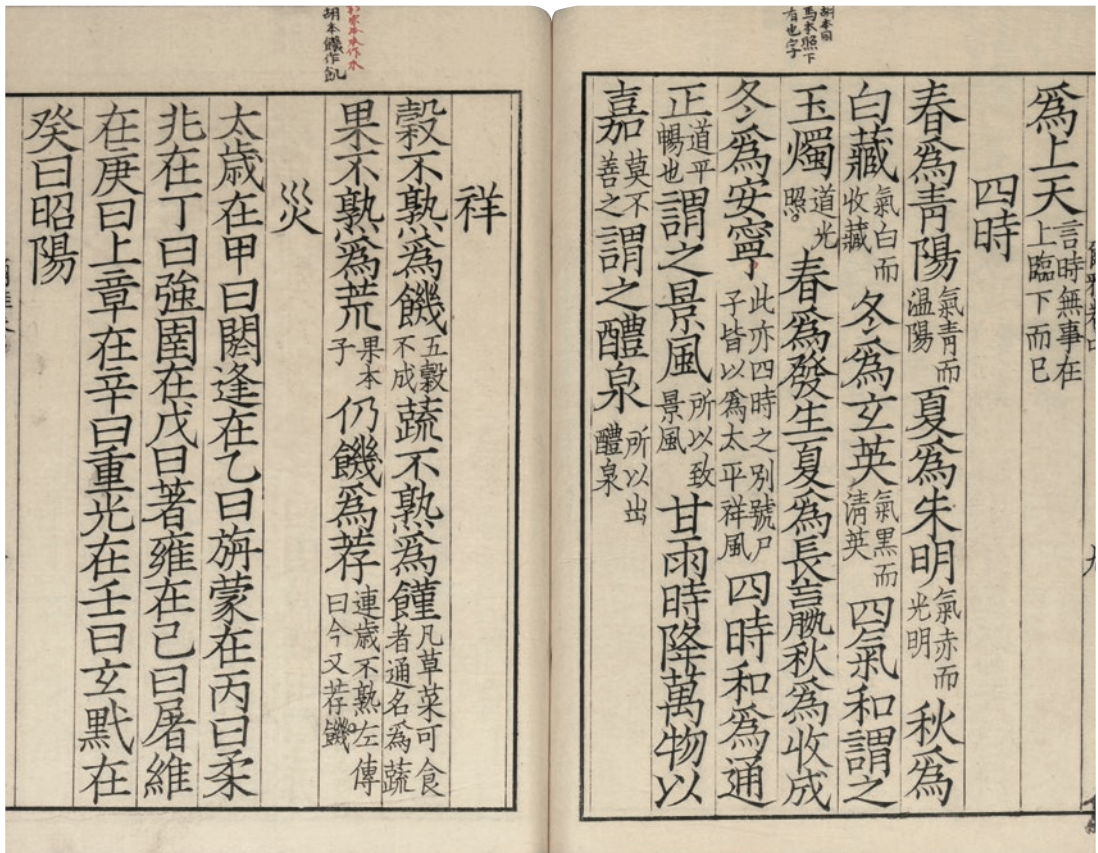 胡本同
馬本照下
有也字
爲上天言時無事在上臨下而已
四時
春爲青陽氣青而温陽夏爲朱明氣赤而光明秋爲
白藏氣白而收藏冬爲玄英氣黑而清英四氣和謂之
玉燭道光照春爲發生夏爲長嬴秋爲收成
冬爲安寧此亦四時之別號尸子皆以爲太平祥風四時和爲通
正道平暢也謂之景風所以致景風甘雨時降萬物以
嘉莫不善之謂之醴泉所以出醴泉
胡本饑作飢
祥
穀不熟爲饑五穀不成蔬不熟爲饉凡草菜可食者通名爲蔬
果不熟爲荒果本子仍饑爲荐連歳不熟左傳曰今又荐饑
災
太歳在甲曰閼逢在乙曰旃蒙在丙曰柔
兆在丁曰強圉在戊曰著雍在己曰屠維
在庚曰上章在辛曰重光在壬曰玄黓在
癸曰昭陽